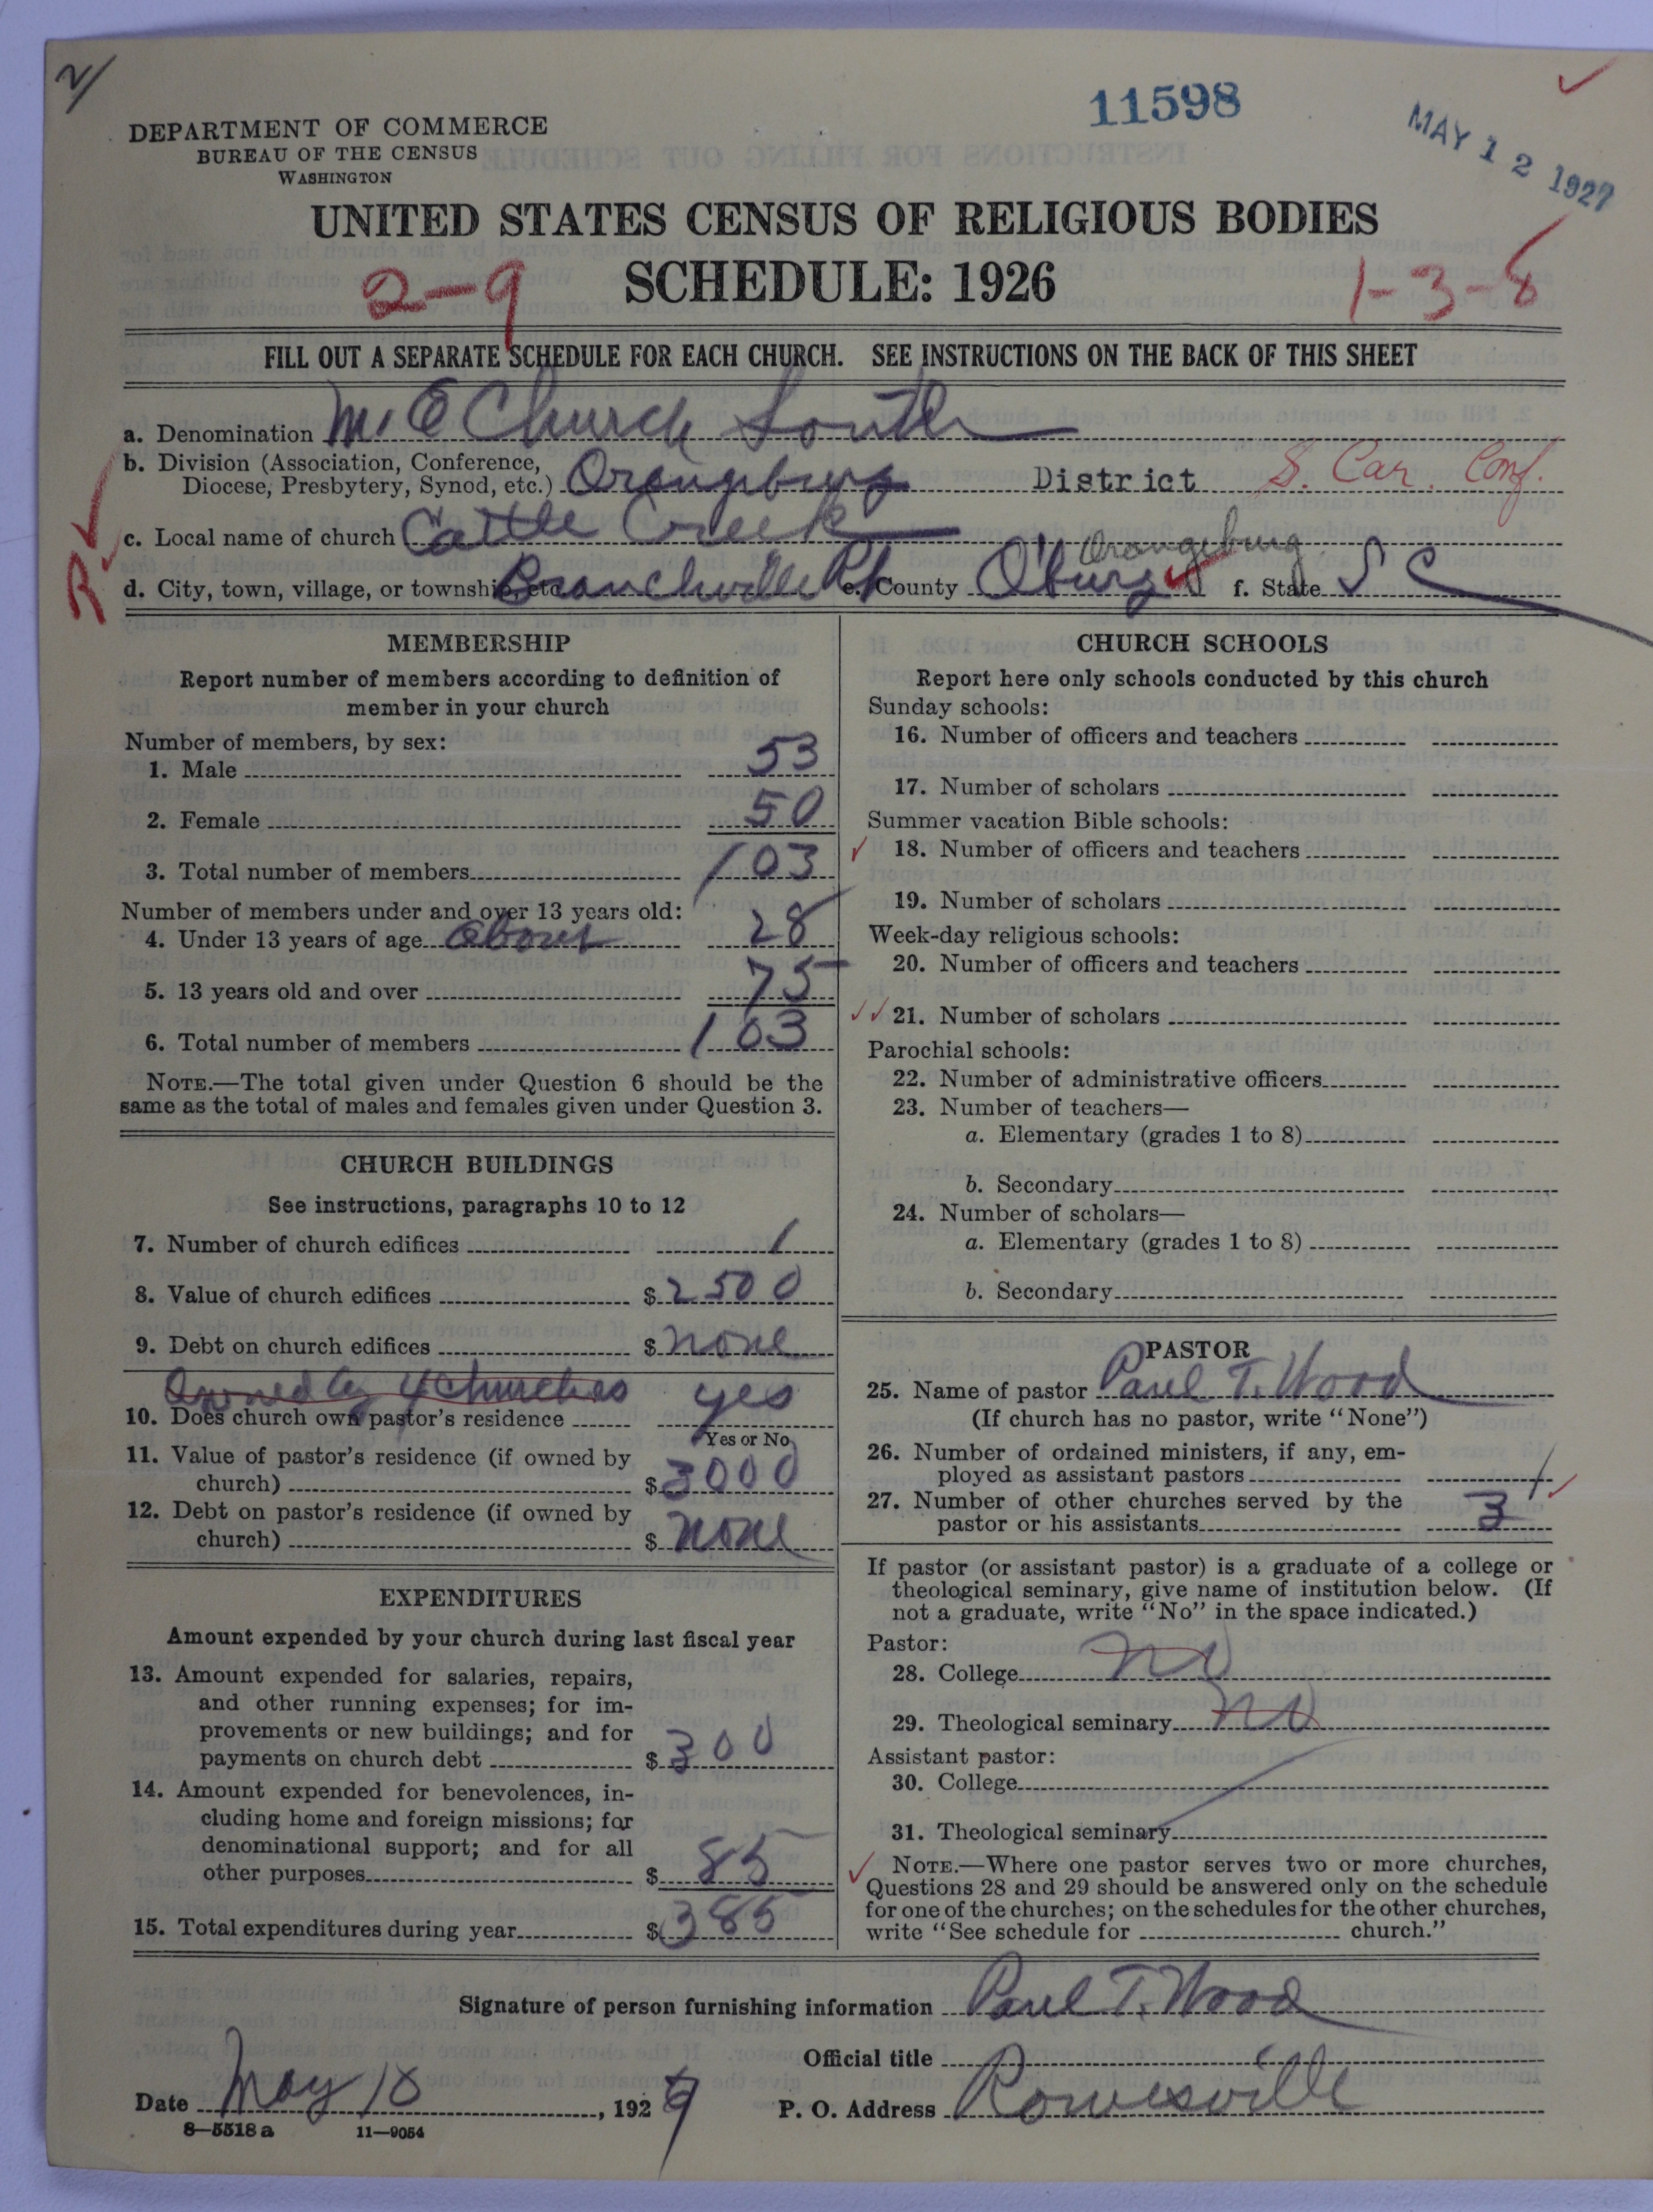 2/
11598
MAY 12 1927
DEPARTMENT OF COMMERCE
BUREAU OF THE CENSUS
WASHINGTON
UNITED STATES CENSUS OF RELIGIOUS BODIES
SCHEDULE: 1926
2-9
1-3-8
FILL OUT A SEPARATE SCHEDULE FOR EACH CHURCH. SEE INSTRUCTIONS ON THE BACK OF THIS SHEET
a. Denomination M. E Church South
b. Division (Association, Conference, Diocese, Presbytery, Synod, etc.) Orangeburg District S. Car. Conf.
R
c. Local name of church Cattle Creek
Orangeburg
d. City, town, village, or township, etc. Branchville e. County O'burg f. State S C
MEMBERSHIP
Report number of members according to definition of
member in your church
Number of members, by sex:
1. Male 53
2. Female 50
3. Total number of members 103
Number of members under and over 13 years old:
4. Under 13 years of age about 28
5. 13 years old and over 75
6. Total number of members 103
NOTE.—The total given under Question 6 should be the
same as the total of males and females given under Question 3.
CHURCH BUILDINGS
See instructions, paragraphs 10 to 12
7. Number of church edifices 1
8. Value of church edifices $2500
9. Debt on church edifices $none
Owned by 4 Churches
10. Does church own pastor's residence yes
Yes or No
11. Value of pastor's residence (if owned by
church) $3000
12. Debt on pastor's residence (if owned by
church) $none
EXPENDITURES
Amount expended by your church during last fiscal year
13. Amount expended for salaries, repairs,
and other running expenses; for im-
provements or new buildings; and for
payments on church debt $300
14. Amount expended for benevolences, in-
cluding home and foreign missions; for
denominational support; and for all
other purposes $85
15. Total expenditures during year $385
CHURCH SCHOOLS
Report here only schools conducted by this church
Sunday schools:
16. Number of officers and teachers
17. Number of scholars
Summer vacation Bible schools:
18. Number of officers and teachers
19. Number of scholars
Week-day religious schools:
20. Number of officers and teachers
21. Number of scholars
Parochial schools:
22. Number of administrative officers
23. Number of teachers—
a. Elementary (grades 1 to 8)
b. Secondary
24. Number of scholars—
a. Elementary (grades 1 to 8)
b. Secondary
PASTOR
25. Name of pastor Paul T. Wood
(If church has no pastor, write "None")
26. Number of ordained ministers, if any, em-
ployed as assistant pastors
27. Number of other churches served by the
pastor or his assistants 3
If pastor (or assistant pastor) is a graduate of a college or
theological seminary, give name of institution below. (If
not a graduate, write "No" in the space indicated.)
Pastor:
28. College no
29. Theological seminary no
Assistant pastor:
30. College
31. Theological seminary
NOTE.—Where one pastor serves two or more churches,
Questions 28 and 29 should be answered only on the schedule
for one of the churches; on the schedules for the other churches,
write "See schedule for church."
Signature of person furnishing information Paul T. Wood
Official title
Date May 10, 1927
P. O. Address Rowesville
8—5518a 11—9054